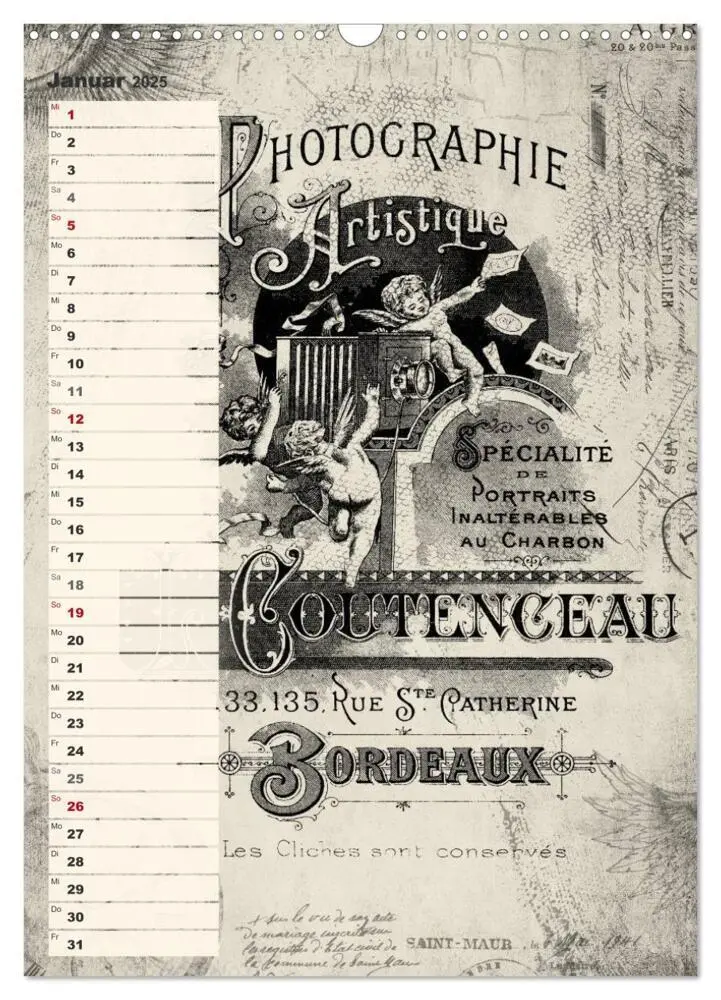 20 & 20bis Pass
Januar 2025
Mi 1
Do 2
Fr 3
Sa 4
So 5
Mo 6
Di 7
Mi 8
Do 9
Fr 10
Sa 11
So 12
Mo 13
Di 14
Mi 15
Do 16
Fr 17
Sa 18
So 19
Mo 20
Di 21
Mi 22
Do 23
Fr 24
Sa 25
So 26
Mo 27
Di 28
Mi 29
Do 30
Fr 31
No
PHOTOGRAPHIE
Artistique
SPÉCIALITÉ
DE
PORTRAITS
INALTÉRABLES
AU CHARBON
COUTENCEAU
33,135, RUE STE CATHERINE
BORDEAUX
Les Cliches sont conservés
de mariage
la commune de Saint
SAINT-MAUR
PARIS